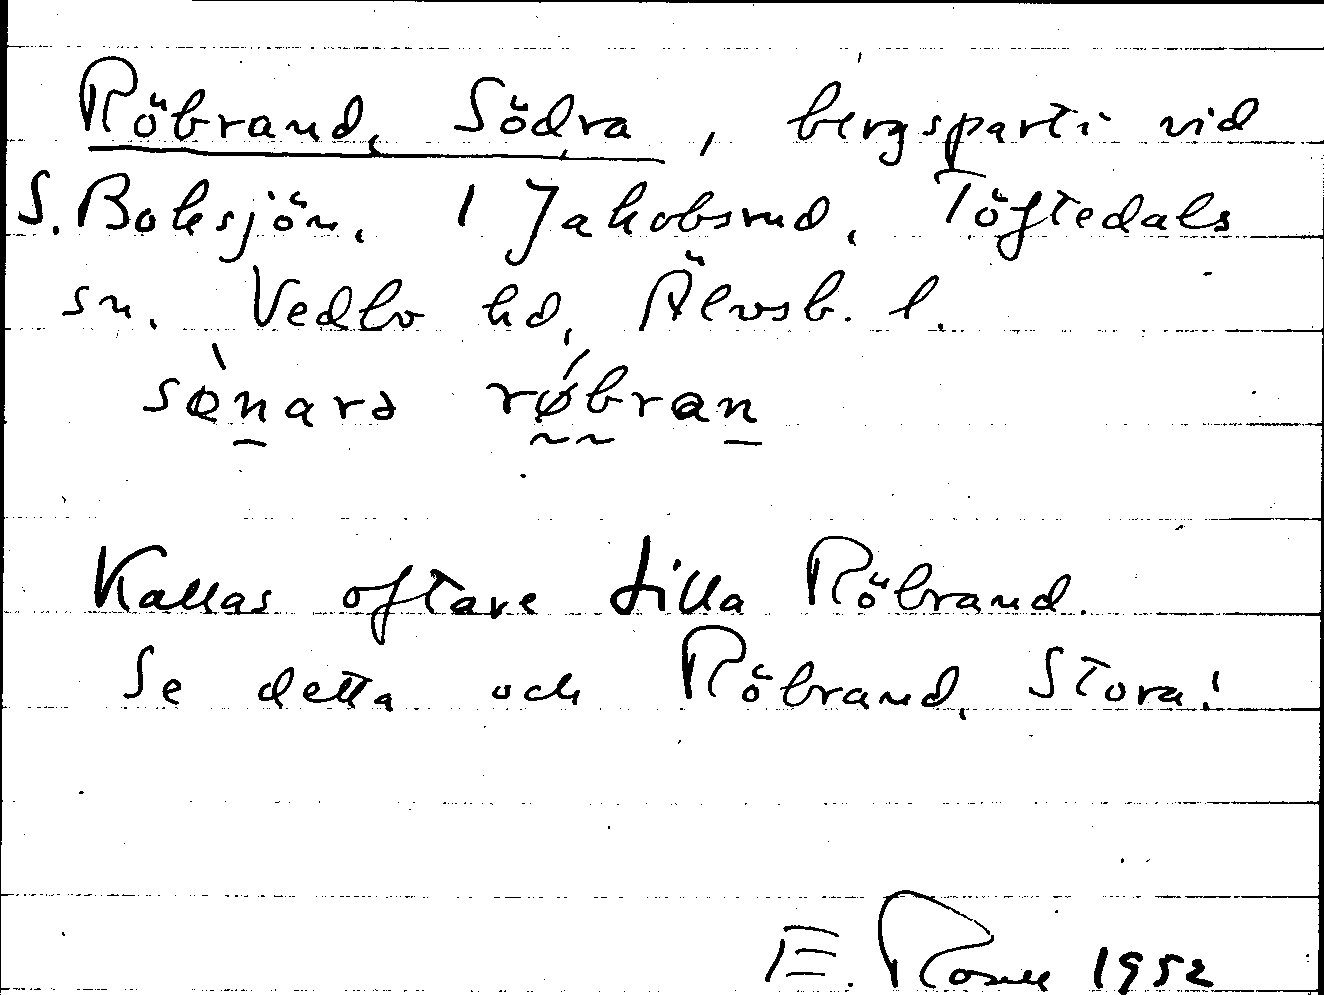 Röbrand, Södra, bergsparti vid
S. Boksjön, 1 Jakobsrud, Töftedals
sn, Vedbo hd, Älvsb. l.
Kallas oftare Lilla Röbrand.
Se detta och Röbrand, Stora!
E. Rosell 1952